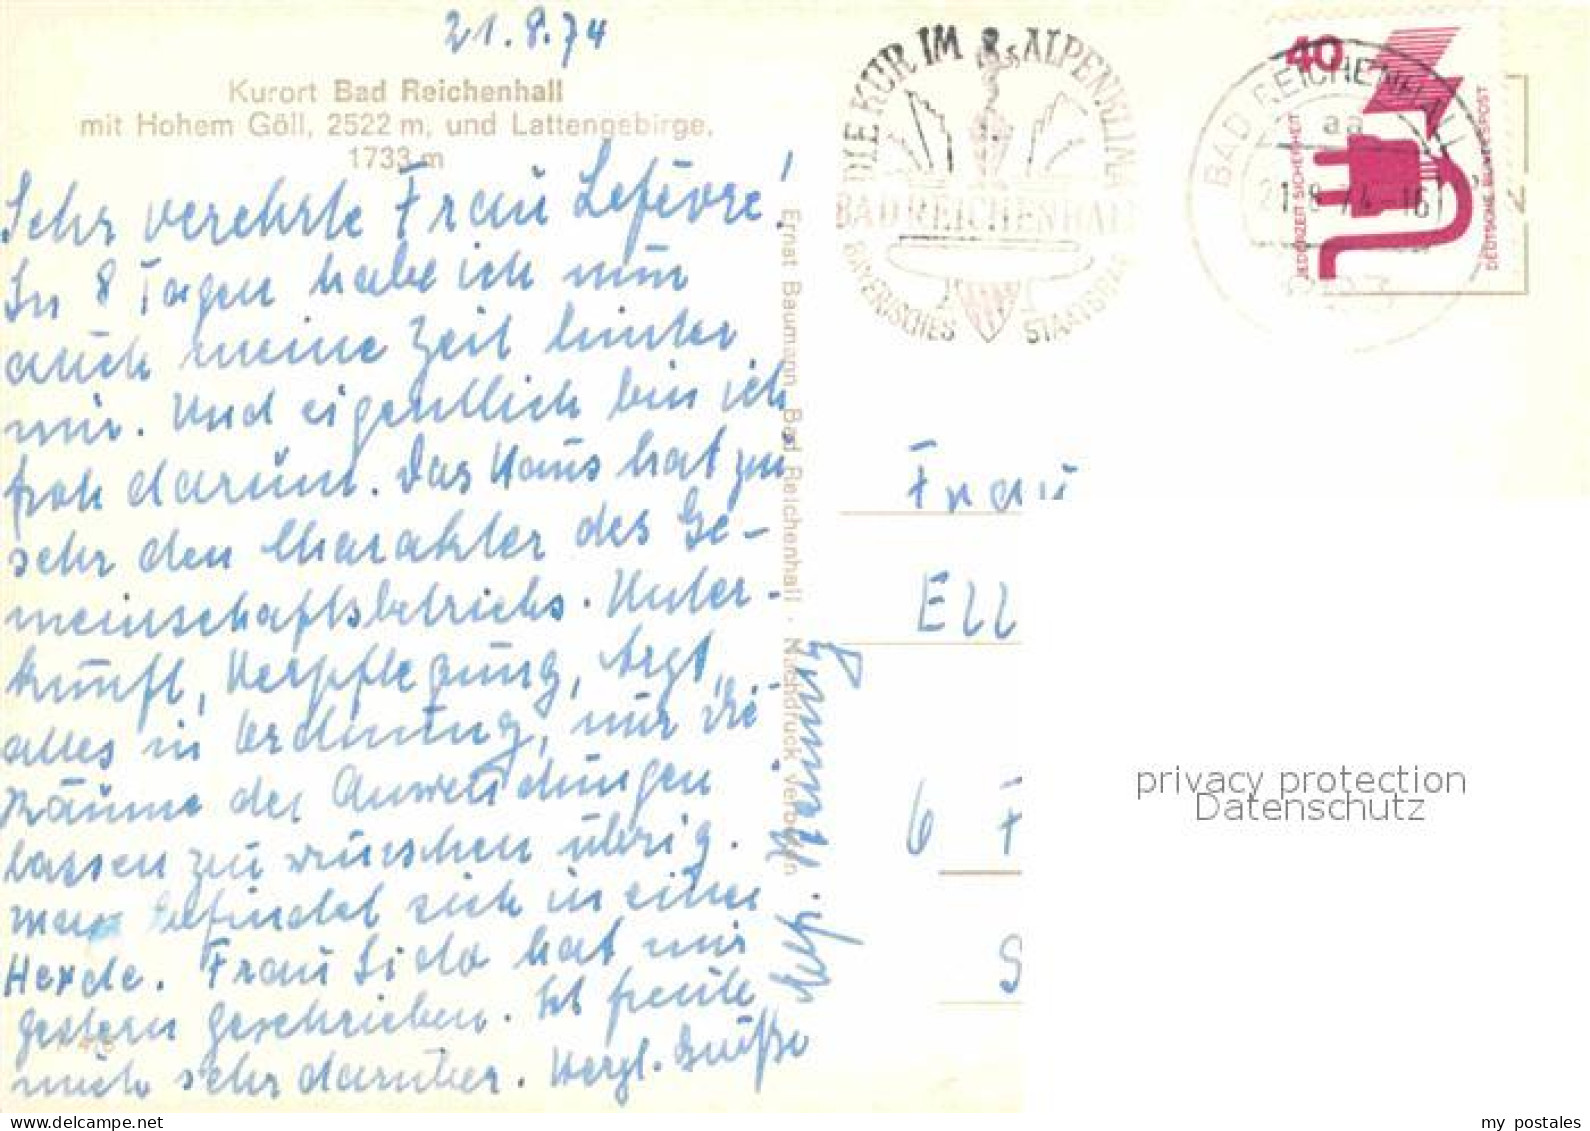 21.8.74
Kurort Bad Reichenhall
mit Hohem Göll, 2522 m, und Lattengebirge,
1733 m
Sehr verehrte Frau Lefèvre!
In 8 Tagen habe ich nun
auch meine Zeit hinter
mir. Und eigentlich bin ich
froh darum. Das Haus hat zu
sehr den Charakter des Ge-
meinschaftsbetriebs. Unter-
kunft, Verpflegung, Arzt,
alles in Ordnung, nur die
Räume der Anwendungen
lassen zu wünschen übrig.
Man befindet sich in einer
Herde. Frau Lido hat mir
gestern geschrieben. Ich freute
mich sehr darüber. Herzl. Grüße
Ernst Baumann, Bad Reichenhall · Nachdruck verboten
DIE KUR IM ALPENKLIMA
BAD REICHENHALL
BAYERISCHES STAATSBAD
BAD REICHENHALL
aa
21.-8.74-16
40
JEDERZEIT SICHERHEIT
DEUTSCHE BUNDESPOST
Frau
Ell
6 F
S
privacy protection
Datenschutz
my postales